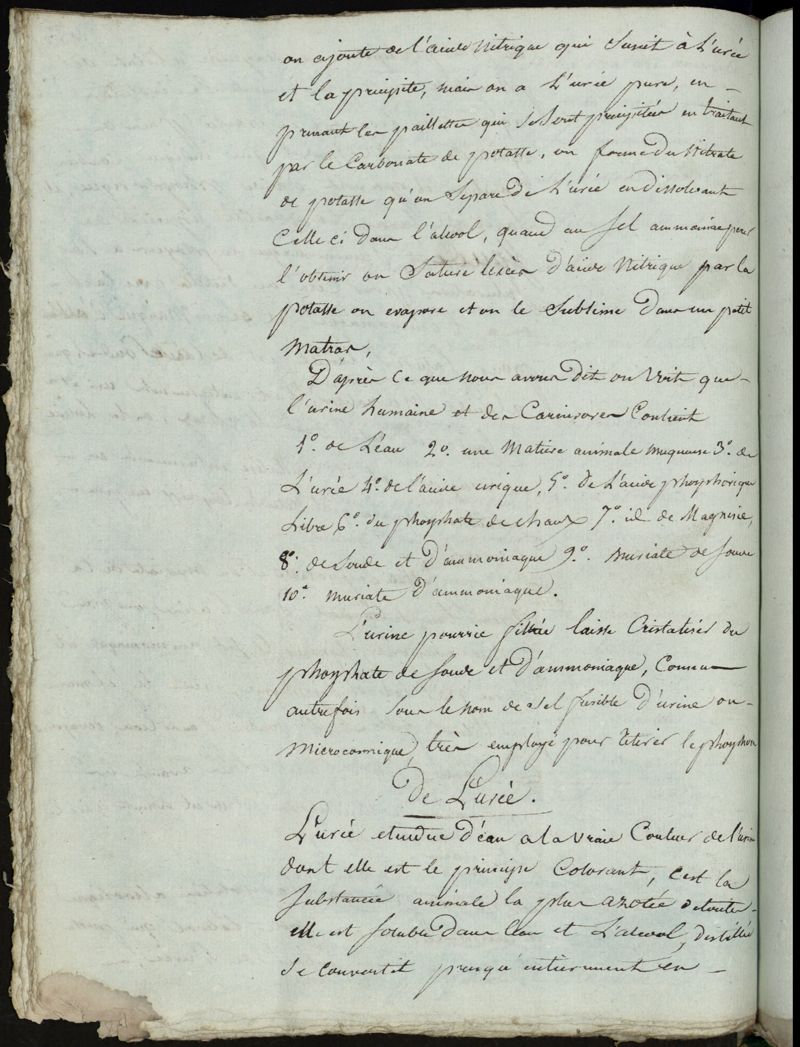 on ajoute de l'acide Nitrique qui s'unit à L'urée
et la précipite, mais on a L'urée pure, en -
prenant les paillettes qui se sont précipitées en traitant
par le Carbonate de potasse, on forme du Nitrate
de potasse qu'on Separe de L'urée en dissolvant
Celle ci dans l'alcool, quand au sel ammoniac pour
l'obtenir on Sature l'excès d'acide Nitrique par la
potasse on evapore et on le Sublime dans un petit
Matras,
D'après ce que nous avons dit on voit que -
l'urine humaine et des Carnivores Contient
1º. de L'eau 2º. une Matiere animale muqueuse 3º. de
L'urée 4º. de l'acide urique, 5º. de L'acide phosphorique
Libre 6º. du phosphate de chaux 7º. id. de Magnésie,
8º. de Soude et D'ammoniaque 9º. muriate de Soude
10º. muriate D'ammoniaque.
L'urine pourrie filtrée laisse Cristaliser du
phosphate de Soude et D'ammoniaque, Connu -
autrefois Sous le nom de Sel fusible D'urine ou -
Microcosmique, très employé pour retirer le phosphore
De L'urée.
L'urée etendue d'eau a la vraie Couleur de l'urine
dont elle est le principe Colorant, C'est la
Substance animale la plus azotée de toutes -
elle est Soluble dans l'eau et L'alcool, distillée
Se convertit presqu'entierement en -